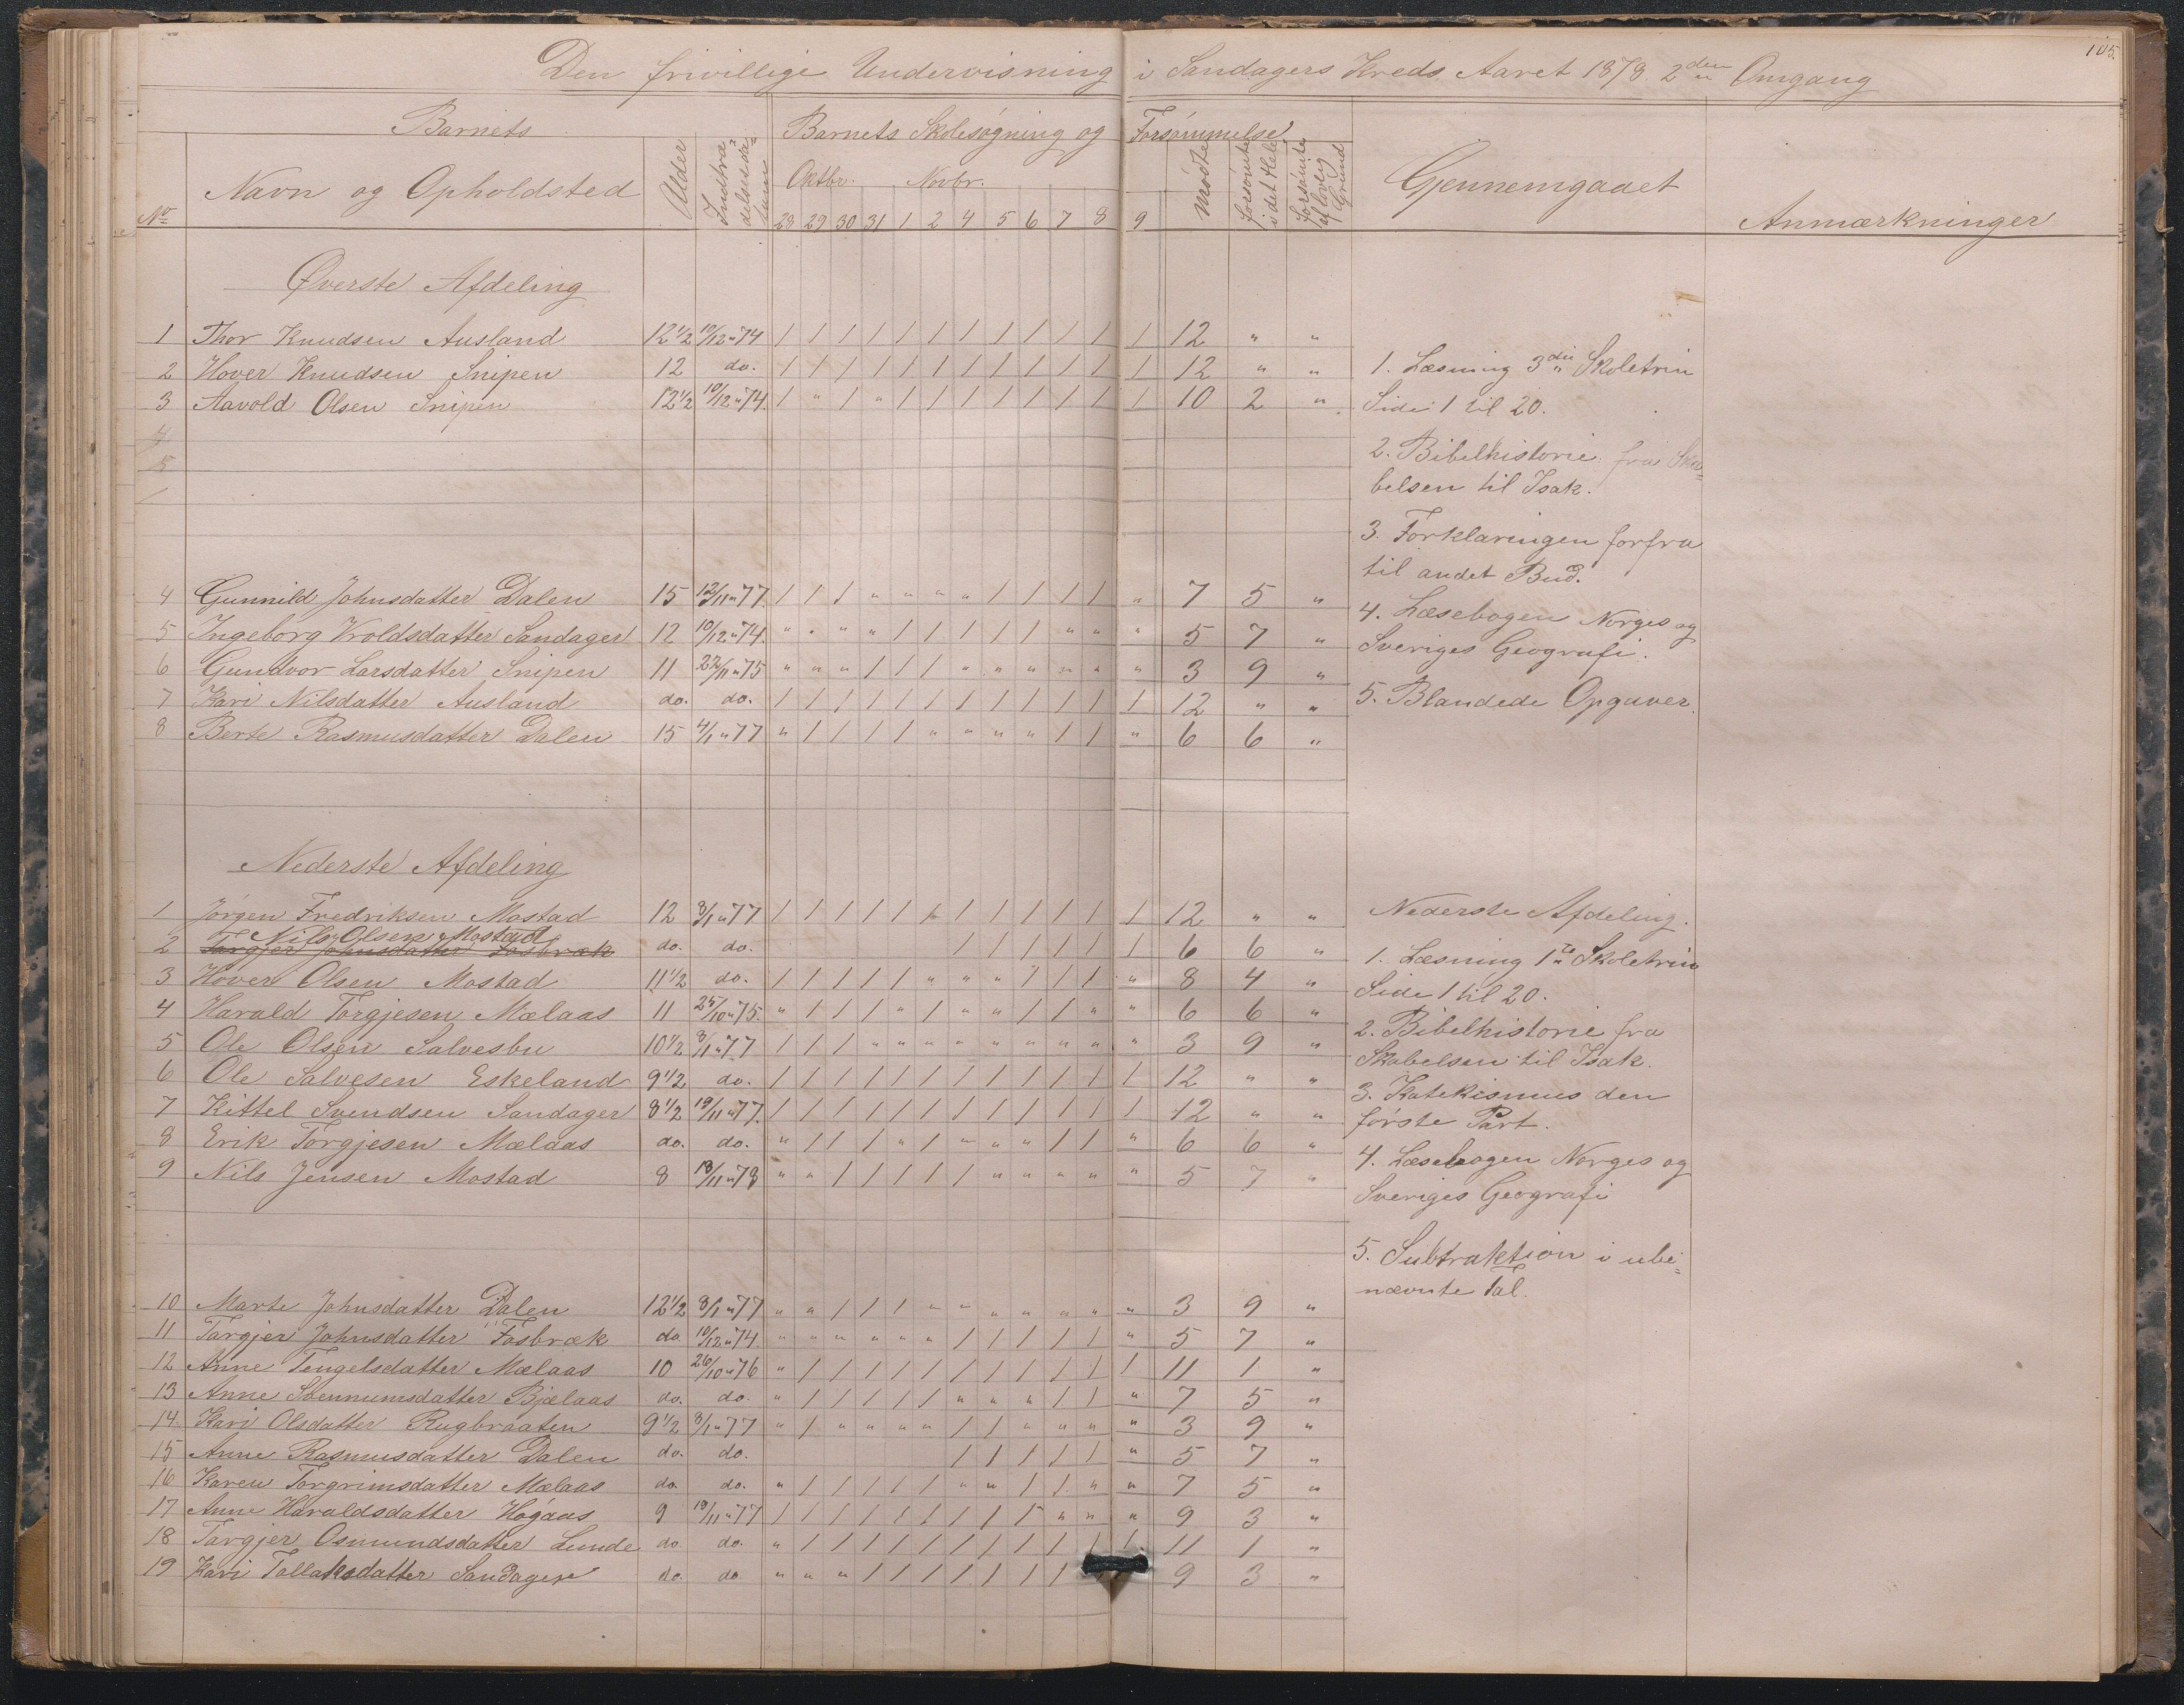 105.
Den frivillige Undervisning i Sandagers Kreds Aaret 1878. 2den Omgang
Barnets
Barnets Skolesøgning og Forsømmelse
No
Navn og Opholdsted
Alder
Indtræ-
delsesda-
tum
Oktbr.
Novbr.
28 29 30 31 1 2 4 5 6 7 8 9
Mødte
forsømte
i det Hele
forsømte
af lovlig
Grund
Gjennemgaaet
Anmærkninger
Øverste Afdeling
1 Thor Knudsen Ausland 12 1/2 10/12 " 74 / / / / / / / / / / / / 12 " "
2 Hover Knudsen Snipen 12 do. / / / / / / / / / / / / 12 " "
3 Aavold Olsen Snipen 12 1/2 10/12 " 74. / " / " / / / / / / / / 10 2 "
4
5
4 Gunnild Johnsdatter Dalen 15 12/11 " 77. / / / " " " " / / / / " 7 5 "
5 Ingeborg Vroldsdatter Sandager 12 10/12 " 74. " " " " / / / / / " " " 5 7 "
6 Gundvor Larsdatter Snipen 11 22/11 " 75 " " " / / / " " " " " " 3 9 "
7 Kari Nilsdatter Ausland do. do. / / / / / / / / / / / / 12 " "
8 Berte Rasmusdatter Dalen 15 4/1 " 77 " / / / / " " " " / / " 6 6 "
1. Læsning 3die Skoletrin
Side 1 til 20.
2. Bibelhistorie fra Ska-
belsen til Isak.
3. Forklaringen forfra
til andet Bud.
4. Læsebogen Norges og
Sveriges Geografi.
5. Blandede Opgaver.
Nederste Afdeling
1 Jørgen Fredriksen Mostad 12 8/1 " 77 / / / / / / / / / / / / 12 " "
Nils Olsen Mostad
2 Targjer Johnsdatter Fosbræk do. do. / / / / / / 6 6 "
3 Hover Olsen Mostad 11 1/2 do. / / / / / " " " / / / " 8 4 "
4 Harald Torgjesen Mælaas 11 25/10 " 75. " / / / " / " " / / " " 6 6 "
5 Ole Olsen Salvesbu 10 1/2 8/1 " 77 / / / " " " " " " " " " 3 9 "
6 Ole Salvesen Eskeland 9 1/2 do. / / / / / / / / / / / / 12 " "
7 Kittel Svendsen Sandager 8 1/2 19/11 " 77. / / / / / / / / / / / / 12 " "
8 Erik Torgjesen Mælaas do. do. " / / / " / " " " / / " 6 6 "
9 Nils Jensen Mostad 8 18/11 " 78 " " / / / / / " " " " " 5 7 "
10 Marte Johnsdatter Dalen 12 1/2 8/1 " 77 " " / / / " " " " " " " 3 9 "
11 Targjer Johnsdatter Fosbræk do. 10/12 " 74. " " " " " " / / / / / " 5 7 "
12 Anne Tengelsdatter Mælaas 10 26/10 " 76 " / / / / / / / / / / / 11 1 "
13 Anne Svennumsdatter Bjælaas do. do. " / / / / / " " " / / " 7 5 "
14 Kari Olsdatter Rugbraaten 9 1/2 8/1 " 77 " / " " " " / / " " " " 3 9 "
15 Anne Rasmusdatter Dalen do. do. / / / / / " 5 7 "
16 Karen Torgrimsdatter Mælaas do. do. " / / / / / " " / / " " 7 5 "
17 Anne Haraldsdatter Høgaas 9 19/11 " 77 / / / / / / / / / " " " 9 3 "
18 Targjer Osmundsdatter Lunde do. do. " / / / / / / / / / / / 11 1 "
19 Kari Tallaksdatter Sandager do. do. " " " / / / / / / / 9 3 "
Nederste Afdeling.
1. Læsning 1te Skoletrin
Side 1 til 20.
2. Bibelhistorie fra
Skabelsen til Isak.
3. Katekismus den
første Part.
4. Læsebogen Norges og
Sveriges Geografi
5. Subtraktion i ube-
nævnte Tal.